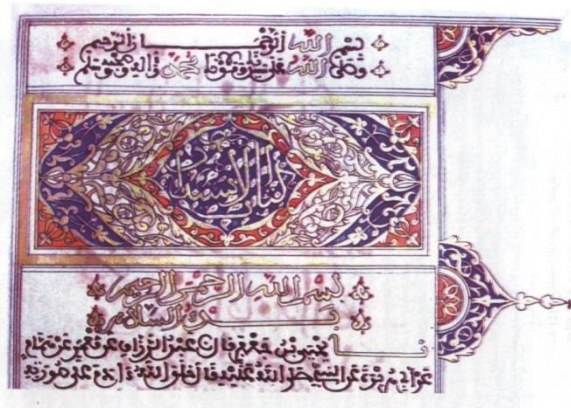 بسم الله الرحمن الرحيم
وصلى الله على سيدنا ومولانا محمد وآله وصحبه وسلم
كتاب الاستيذان
بسم الله الرحمن الرحيم
بدء السلام
نا يحيى بن جعفر قال نا عبد الرزاق عن معمر عن همام
عن ابي هريرة عن النبي صلى الله عليه قال خلق الله آدم على صورته